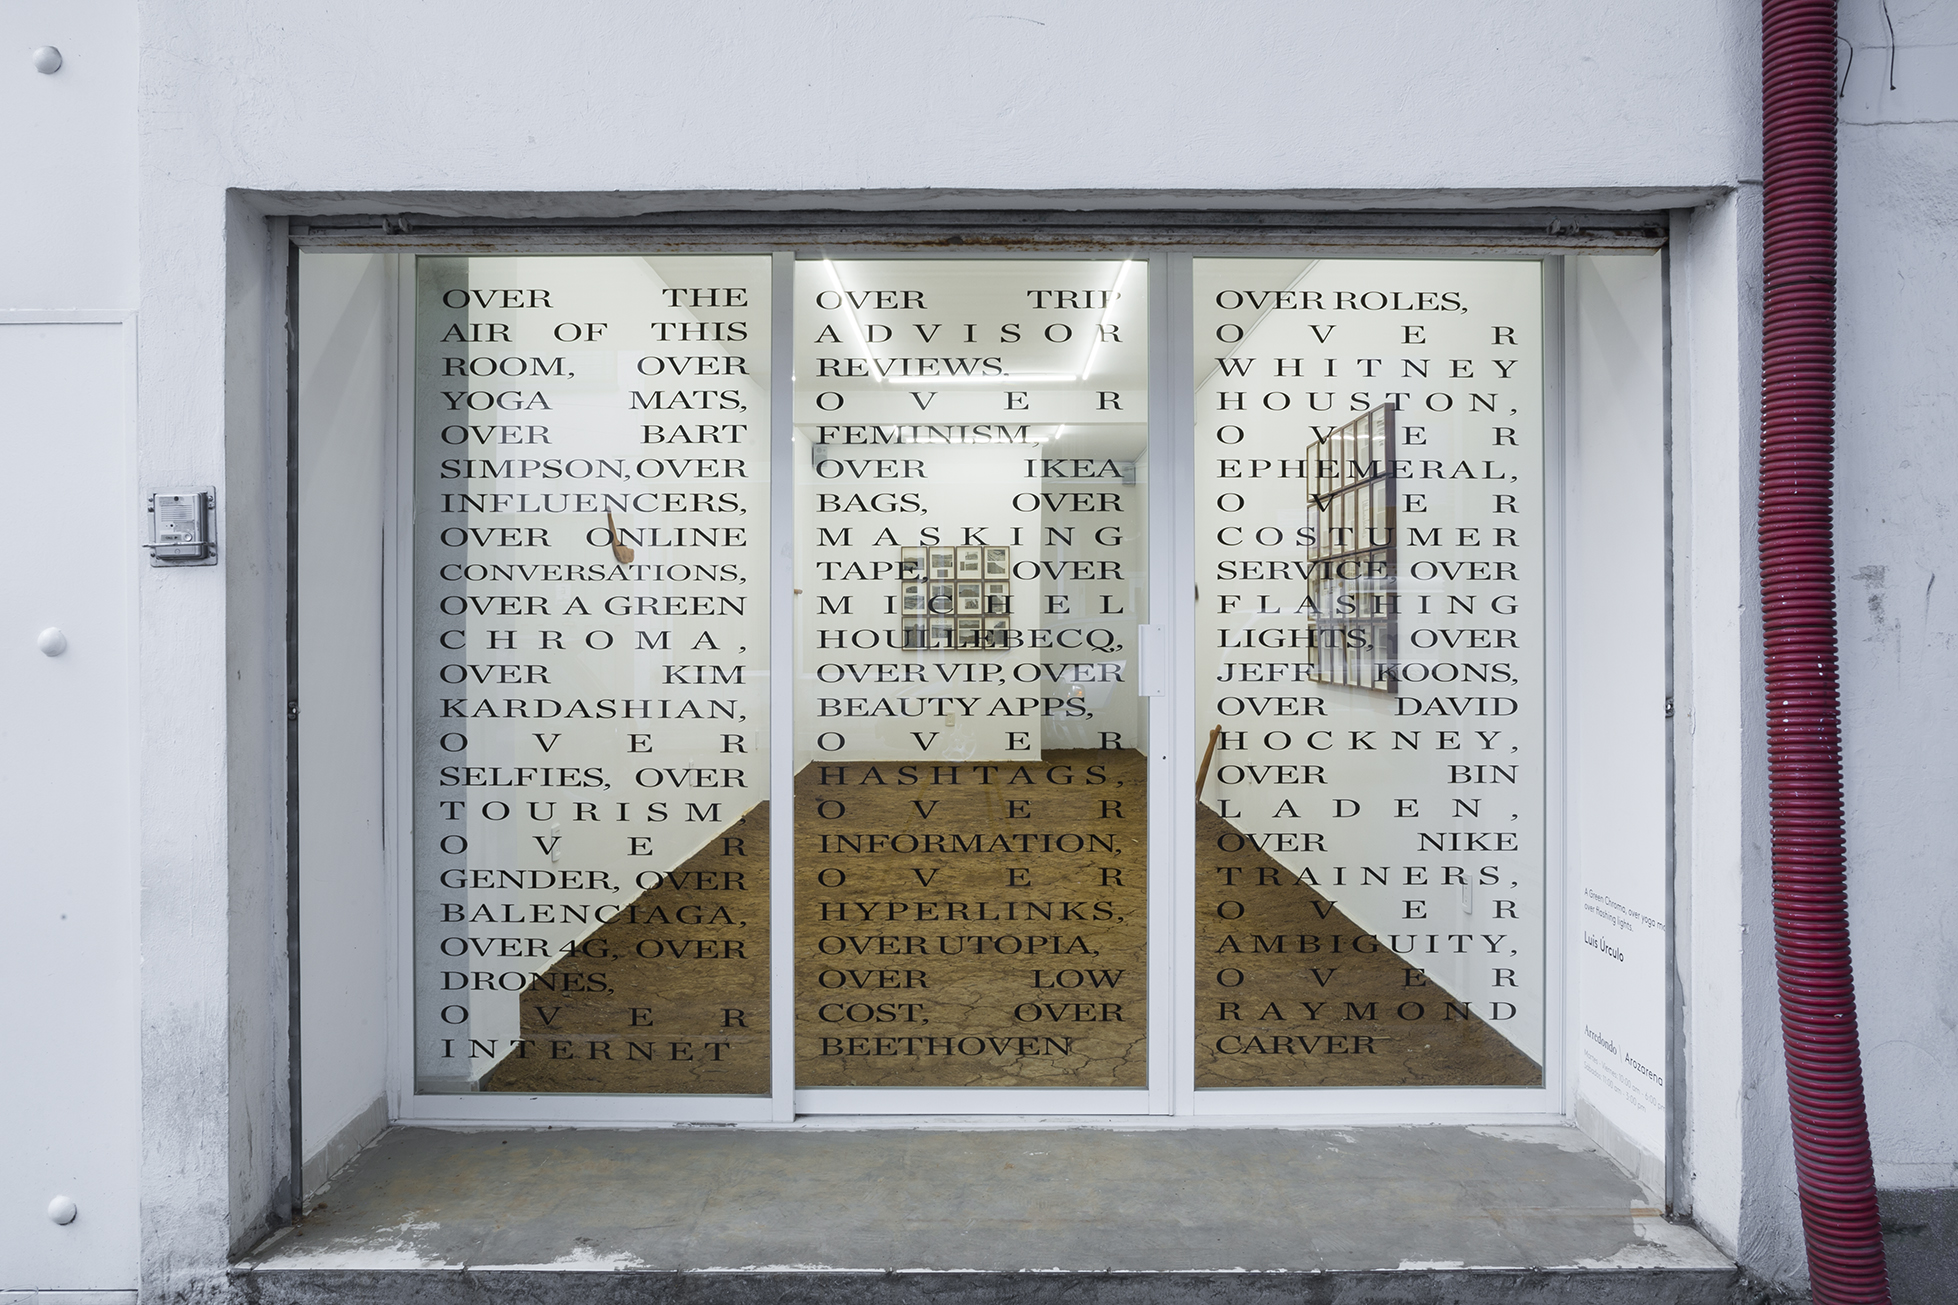 OVER THE
AIR OF THIS
ROOM, OVER
YOGA MATS,
OVER BART
SIMPSON, OVER
INFLUENCERS,
OVER ONLINE
CONVERSATIONS,
OVER A GREEN
CHROMA,
OVER KIM
KARDASHIAN,
OVER
SELFIES, OVER
TOURISM,
OVER
GENDER, OVER
BALENCIAGA,
OVER 4G, OVER
DRONES,
OVER
INTERNET
OVER TRIP
ADVISOR
REVIEWS,
OVER
FEMINISM,
OVER IKEA
BAGS, OVER
MASKING
TAPE, OVER
MICHEL
HOULLEBECQ,
OVER VIP, OVER
BEAUTY APPS,
OVER
HASHTAGS,
OVER
INFORMATION,
OVER
HYPERLINKS,
OVER UTOPIA,
OVER LOW
COST, OVER
BEETHOVEN
OVER ROLES,
OVER
WHITNEY
HOUSTON,
OVER
EPHEMERAL,
OVER
COSTUMER
SERVICE, OVER
FLASHING
LIGHTS, OVER
JEFF KOONS,
OVER DAVID
HOCKNEY,
OVER BIN
LADEN,
OVER NIKE
TRAINERS,
OVER
AMBIGUITY,
OVER
RAYMOND
CARVER
A Green Chroma, over yoga
over flashing lights.
Luis Úrculo
Arredondo \ Arozarena